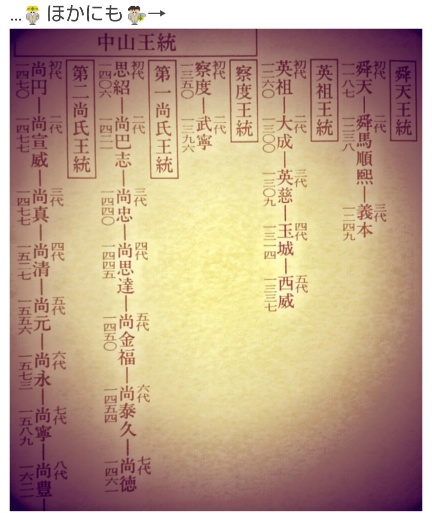 … ほかにも →
中山王統
舜天王統
初代 二代 三代
舜天―舜馬順熙―義本
一一八七 一二三八 一二四九
英祖王統
初代 二代 三代 四代 五代
英祖―大成―英慈―玉城―西威
一二六〇 一三〇〇 一三〇九 一三一四 一三三七
察度王統
初代 二代
察度―武寧
一三五〇 一三九六
第一尚氏王統
初代 二代 三代 四代 五代 六代 七代
思紹―尚巴志―尚忠―尚思達―尚金福―尚泰久―尚徳
一四〇六 一四二二 一四四〇 一四四五 一四五〇 一四五四 一四六一
第二尚氏王統
初代 二代 三代 四代 五代 六代 七代 八代
尚円―尚宣威―尚真―尚清―尚元―尚永―尚寧―尚豊―
一四七〇 一四七七 一四七七 一五二七 一五五六 一五七三 一五八九 一六二一